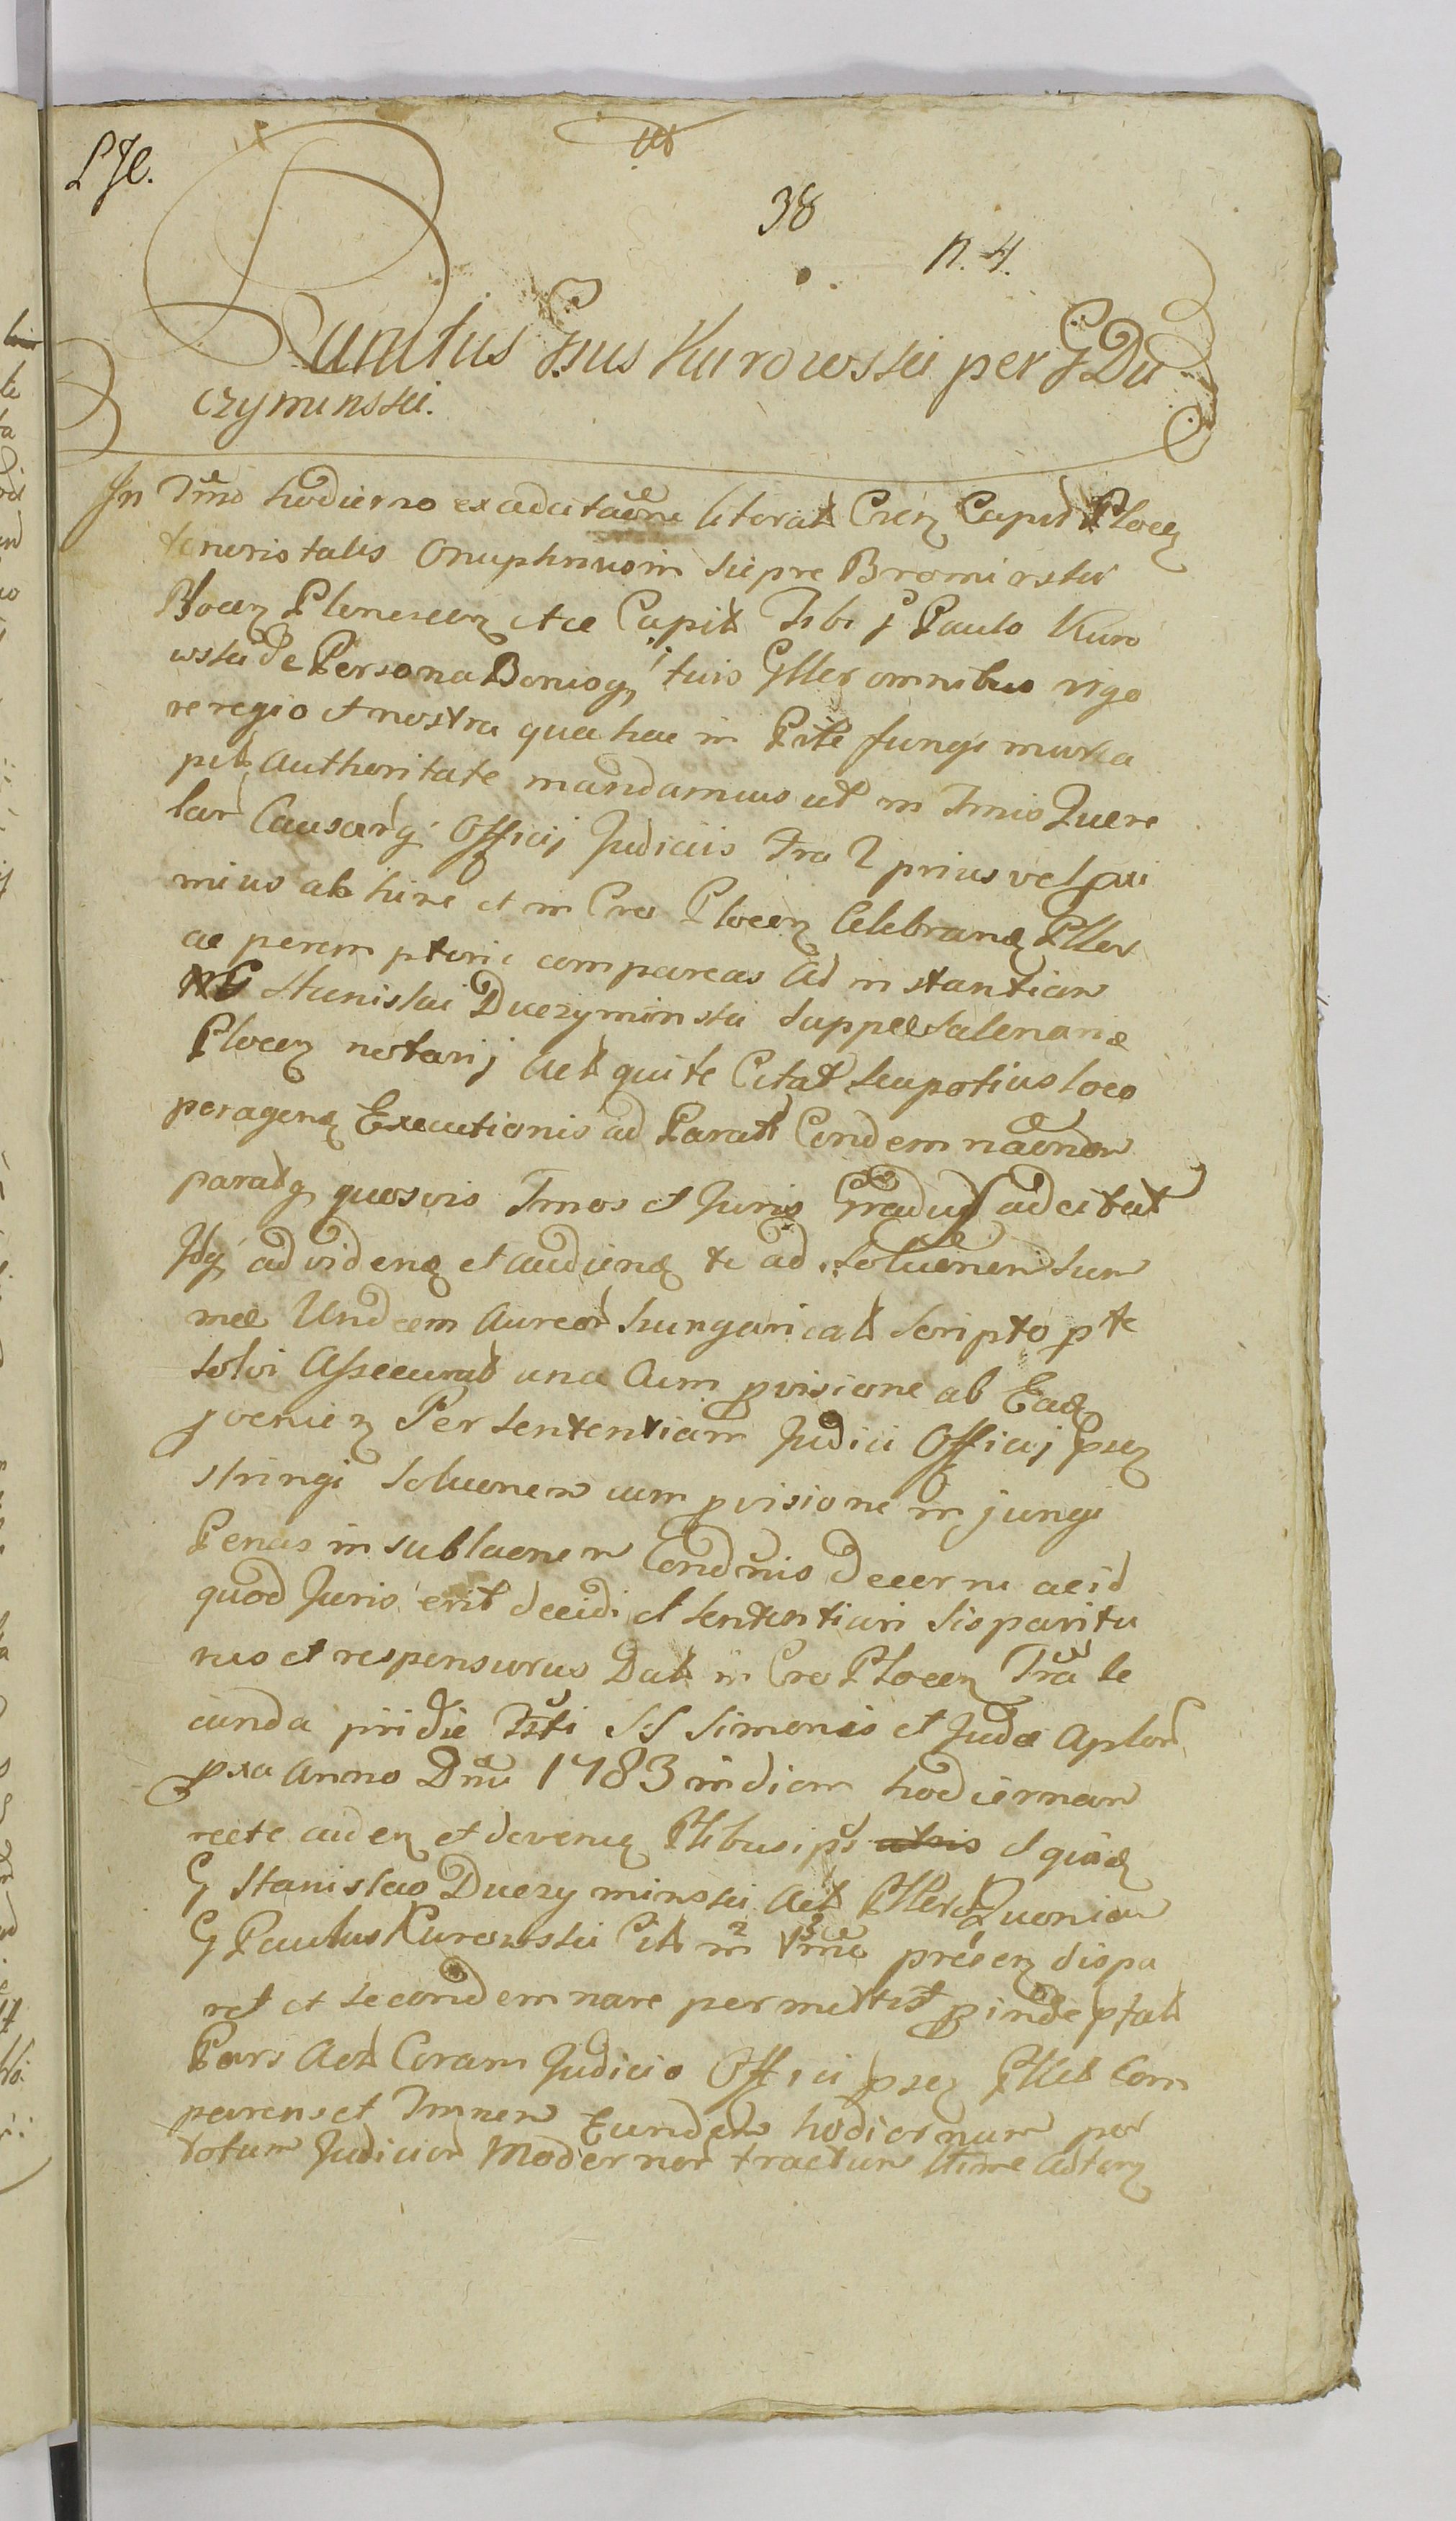 38
n. 4.
Paratus Gsus Kurowski per G Du
czyminski.
In Tmo hodierno ex adcitaone literali Cren Capit Plocen
tenoris talis Onuphrius in Siepre Bromirski
Plocen Plonescen etce Capit Tibi G Paulo Kuro
wski de Persona Bonisq tuis Gller omnibus vigo
re regio et nostra qua hac in Pite fungimur ca
pit authoritate mandamus ut in Tmis Quere
lar Causarq Officij Judiciis Fra 2 prius vel proxi
mius ab hinc et in Cro Plocen Celebrand Pller
ac peremptorie compareas ad instantiam
G Stanislai Duczyminski Suppe Salenaria
Plocen notarij Act qui te Citat seu potius loco
peragend Executionis ad Parati Condemnaonem
paratq quosvis Tmos et Juris Gradus adcitat
Idq ad vidend et audiend te ad Soluonem Sum
mae Undecim Aureor hungarical Scripto p te
solvi Assecurat una cum provisione ab Ead
proenien Per sententiam Judicii Officij Psen
stringi Soluonem cum provisione injungi
Penas in sublaonem Condnis decerni ac id
quod Juris erit decidi et sententiari Sis paritu
rus et responsurus Dat in Cro Plocen Fra Se
cunda pridie Fsti SS Simonis et Judae Aplor
pxa Anno Dni 1783 in diem hodiernam
recte caden et deven Ptibus ips et quid
G Stanislao Duczyminski Act Pller Quoniam
G Paulus Kurowski Cit in Tmo presen dispa
ret et se condemnare permittit proinde pfat
Pars Act Coram Judicio Officii psen Pller Com
parens et Tmnum Eundem hodiernum per
totum Judicior Modernor tractum ltime adten